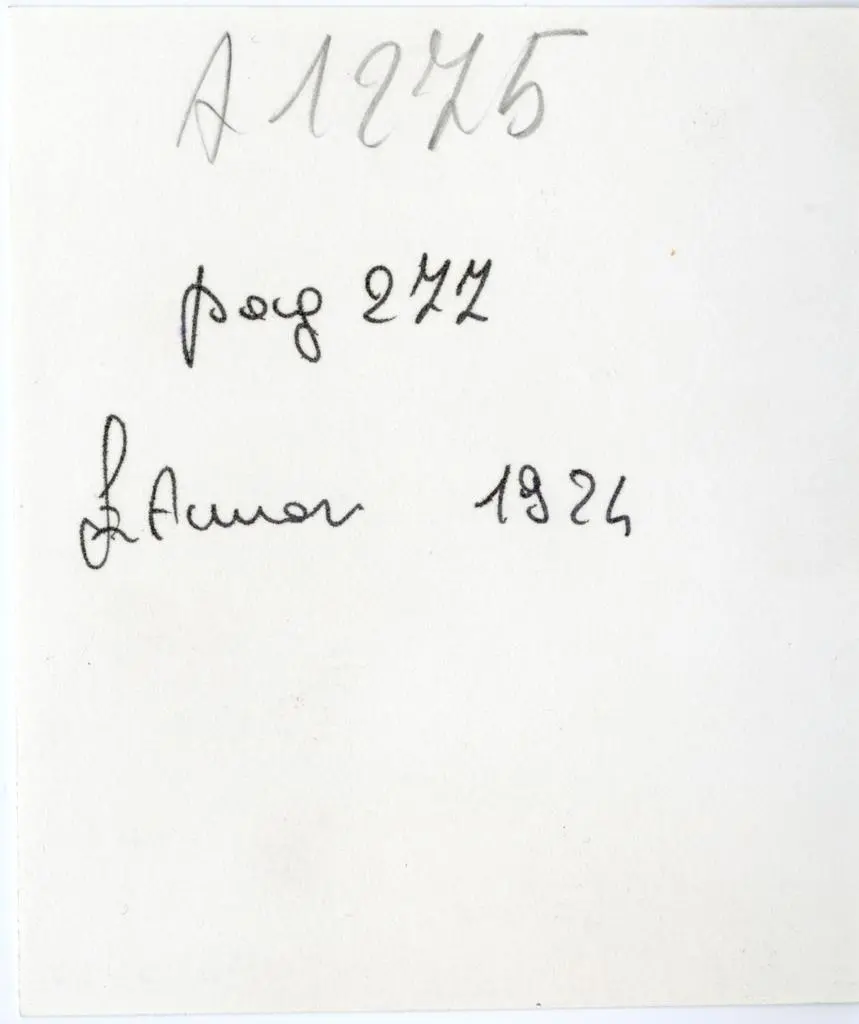 A 1275
pag 277
1924